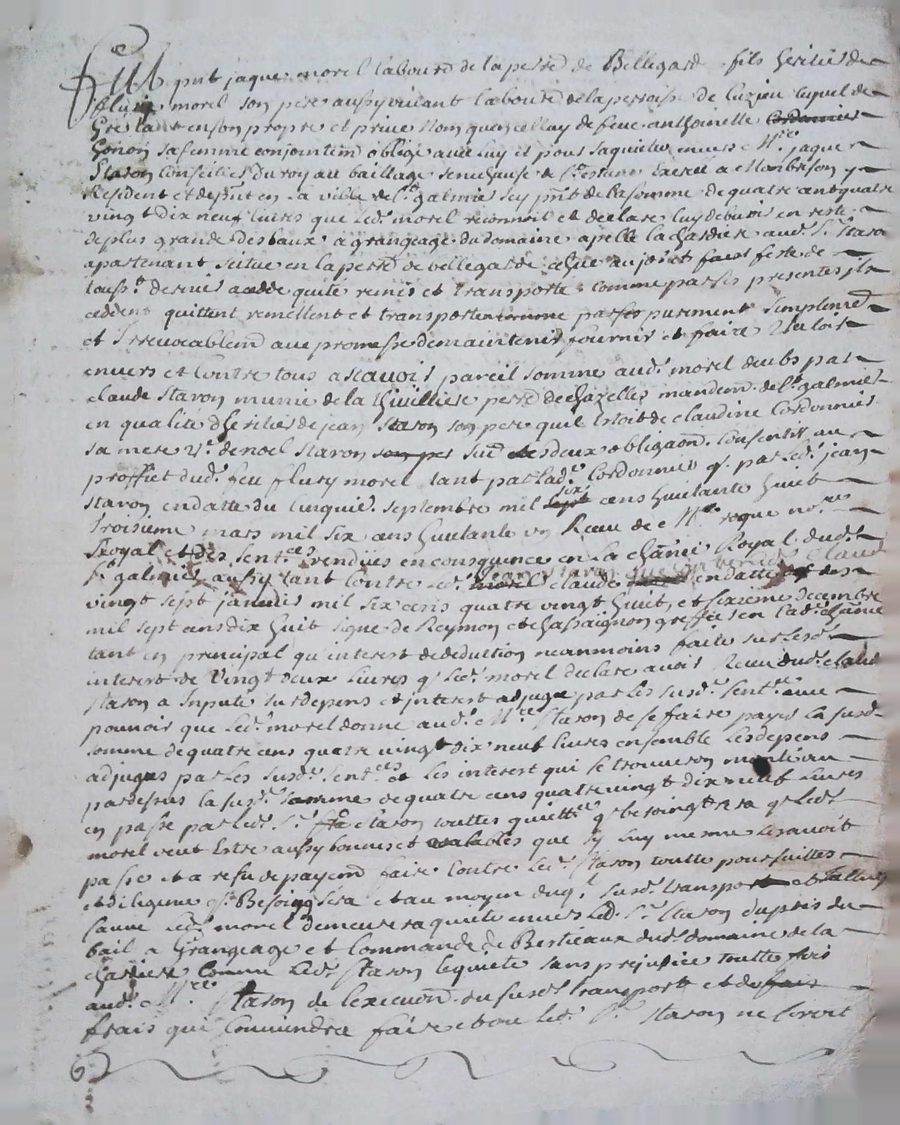 Fut pnt jaques morel laboure de la perre de Bellegarde fils heritier de
fleury morel son pere aussy vivant laboure de la perroisse de Cuzieu lequel de
Gré tant en son propre et privé nom que en celluy de feue anthoinette
Gonon sa femme conjointem obligé avec luy et pour saquiter envers Mre jaques
Staron Conseiller du roy au baillage senechausé de forestz à Montbrison y
Resident et depnt en la ville de St galmier icy pnt de la somme de quatre cent quatre
vingt dix neuf livres que led. morel reconnoit et declare luy debvoir en reste
de plus grande des baux a grangeage du domaine apellé la chardiere aud. Sr Staron
apartenant scitué en la perre de bellegarde echue au jour et faist feste de
touss. dernier a cedde quite remis et transporte comme par ses presentes ils
ceddent quittent remettent et transporte par purement simplemt
et Irrevocablemt avec promesse de maintenir fournir et faire valoir
envers et Contre tous ascavoir pareil somme aud. morel deubs par
claude Staron munie de la thuilliere perre de chazelles mandem. de St galmier
en qualité dheritier de jean Staron son pere qui l'etoit de claudine Cordonnier
sa mere vf. de noel Staron des deux obligaon. Consentis au
proffict dud. feu fleury morel tant par lad. Cordonnier q. par led. jean
staron en datte du cinquie. septembre mil six cens huitante huit
troisieme mars mil six cens huittante un Receu de Me roque nore
Royal et des sentces rendües en consequence en la chanei Royal dud.
St galmier aussy tant contre led. jean staron que contre led. claude en datte des
vingt sept janvier mil six cens quatre vingt huit, et sixieme decembre
mil sept cens dix huit signe de Reymon et chassaignon greffier en lad. chanei
tant en principal qu'interest de deduction neanmoins faite sur lesd.
interest de vingt deux livres q. led. morel declare avoir Receu dud. claude
staron a Inputé sur depens et interest adjugé par les susd. sentce avec
pouvoir que led. morel donne aud. Mre Staron de se faire payer la susd.
somme de quatre cens quatre vingt dix neuf livres ensemble les depens
adjugés par les susd. sentces et les interest qui se trouveron monter au
pardessus la susd. somme de quatre cens quatre vingt dix neuf livres
en passé par led. Sr staron touttes quittces q. besoingt sera q. led.
morel veut estre aussy bonnes et valables que sy luy mesme les avoit
passé et a refu de payemt faire contre led. Staron toutte poursuittes
et diligence q. Besoing sera et au moyen duq. susd. transport et
sauve led. morel demeurera quite envers led. Sr Staron du pris du
bail a Grangeage et Commande de Bestieaux dud. domaine de la
chardiere Comme led. Staron lequite sans prejudice toutte fois
aud. Mre Staron de lexecuon. du susd. transport et des
frais qui Conviendra faire et ou led. Sr Staron ne seroit